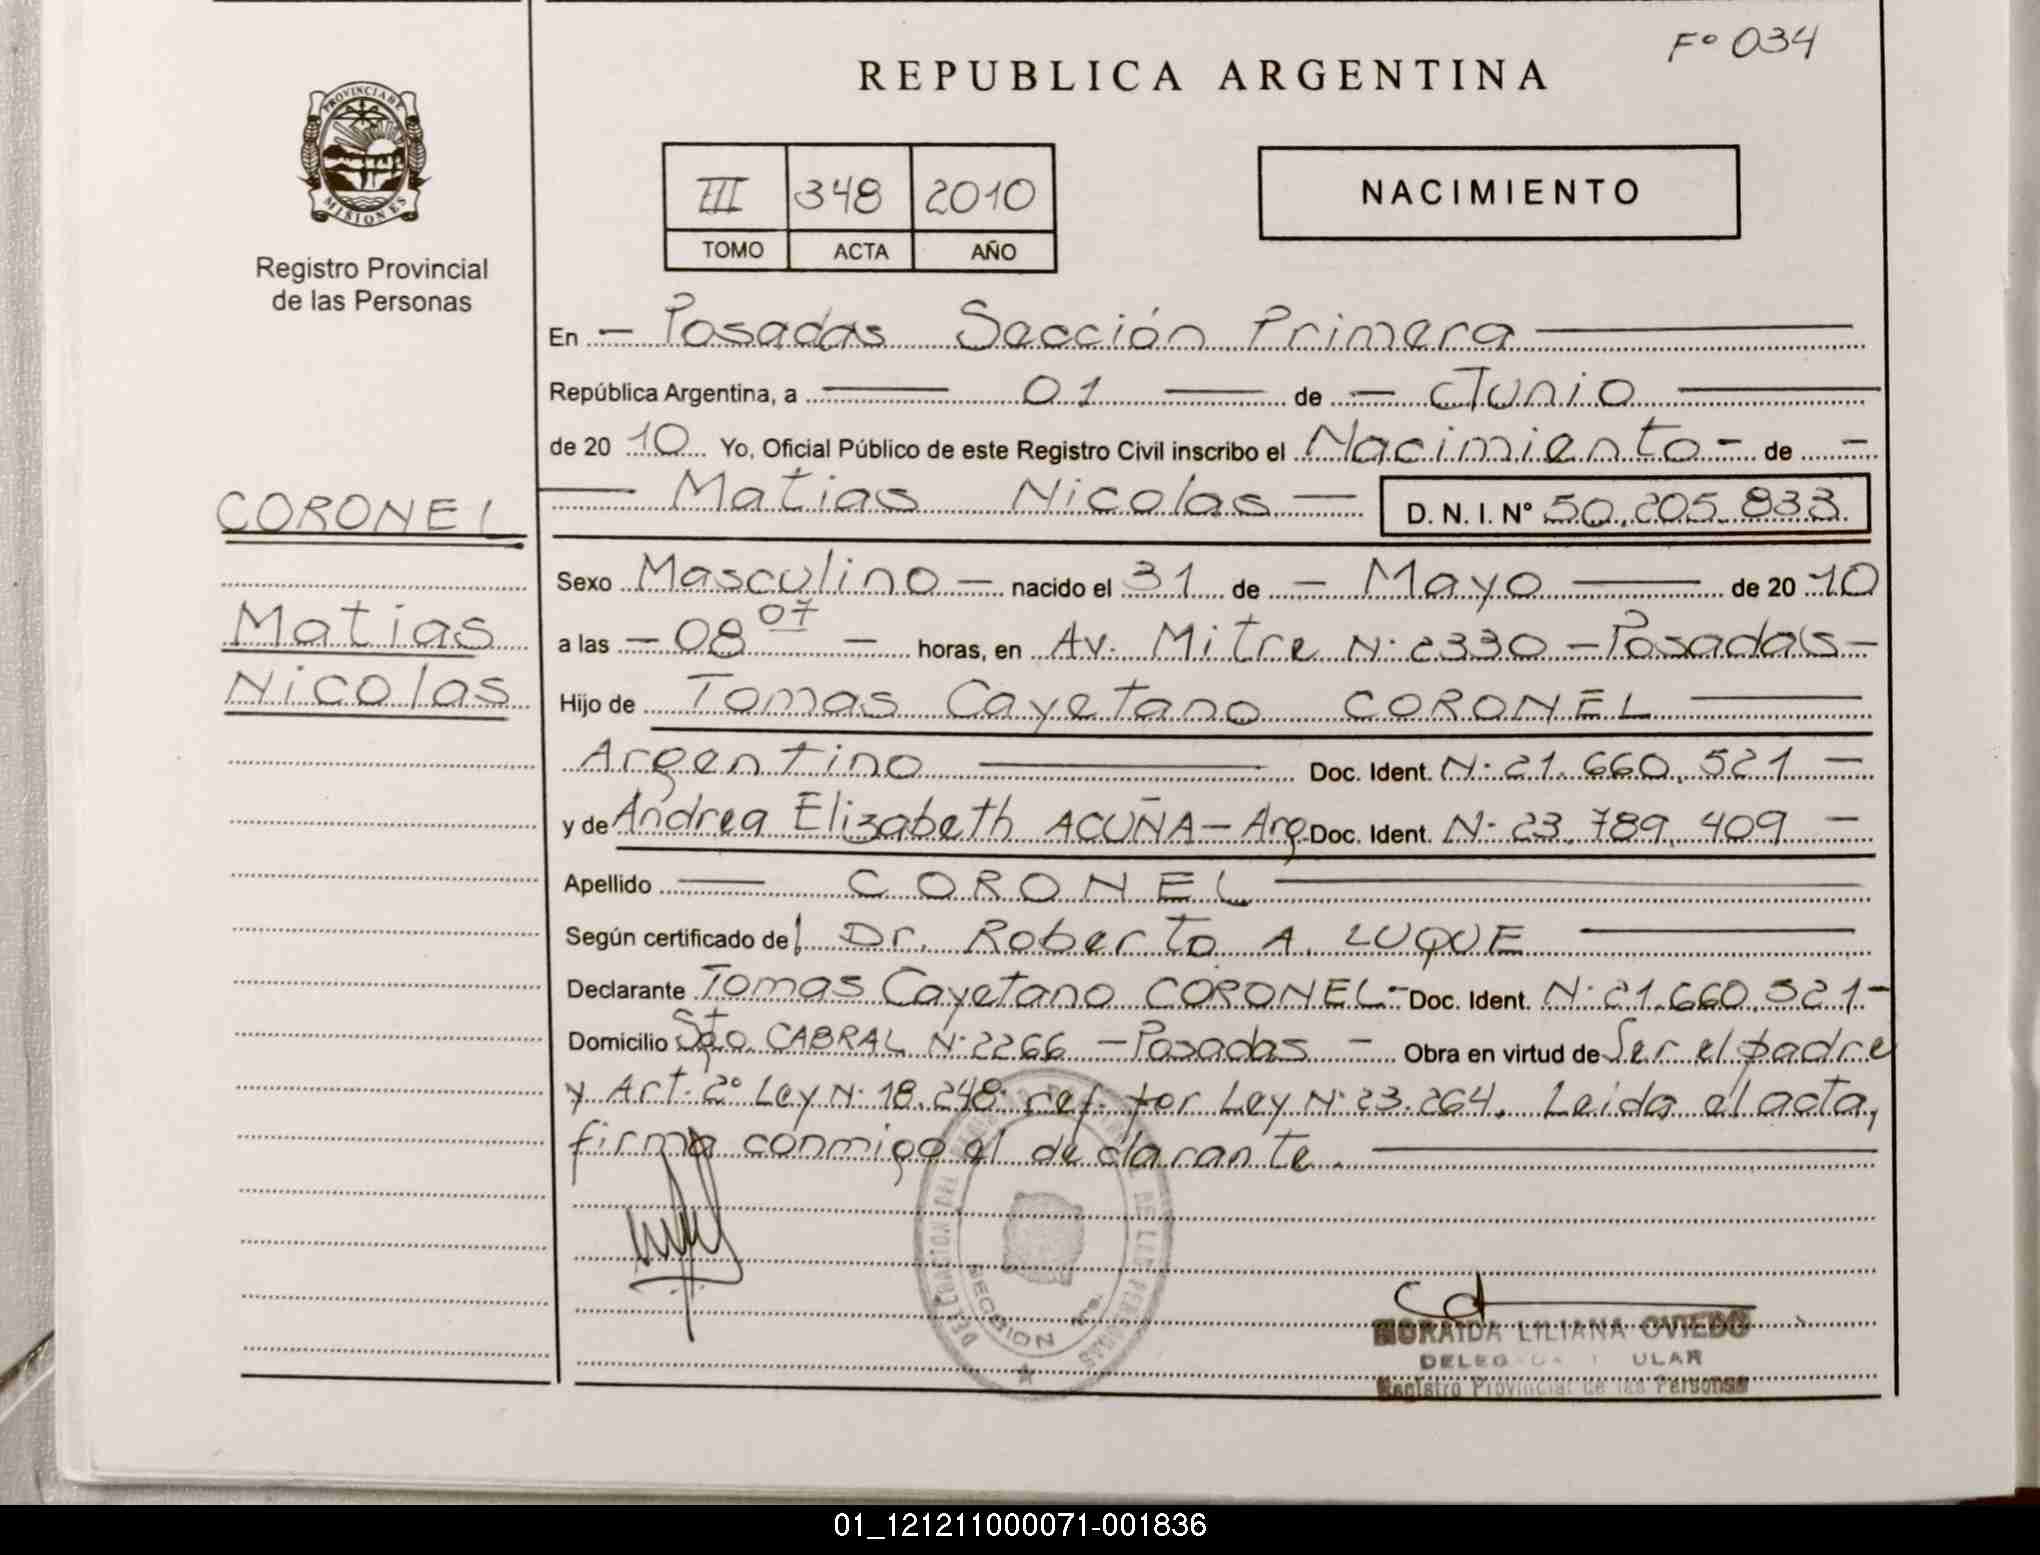 Fº 034
REPUBLICA ARGENTINA
PROVINCIA DE
MISIONES
Registro Provincial
de las Personas
III 348 2010
TOMO ACTA AÑO
NACIMIENTO
En — Posadas Sección Primera
República Argentina, a 01 de — Junio
de 20 10 Yo, Oficial Público de este Registro Civil inscribo el Nacimiento - de —
CORONEL
Matias Nicolas — D. N. I. Nº 50.205.833
Sexo Masculino — nacido el 31 de — Mayo — de 20 10
Matias
a las — 08 07 — horas, en Av. Mitre N· 2330 — Posadas —
Nicolas
Hijo de Tomas Cayetano CORONEL
Argentino Doc. Ident. N· 21.660.521 —
y de Andrea Elizabeth ACUÑA — Arg. Doc. Ident. N· 23.789.409 —
Apellido — CORONEL
Según certificado del Dr. Roberto A. LUQUE
Declarante Tomas Cayetano CORONEL - Doc. Ident. N· 21.660.521 -
Domicilio Sgto. CABRAL N· 2266 — Posadas — Obra en virtud de Ser el padre
y Art. 2º Ley N· 18.248 ref. por Ley N· 23.264. Leida el acta,
firma conmigo el declarante.
SECCION
MORAIDA LILIANA OVIEDO
Registro Provincial de las Personas
01_121211000071-001836